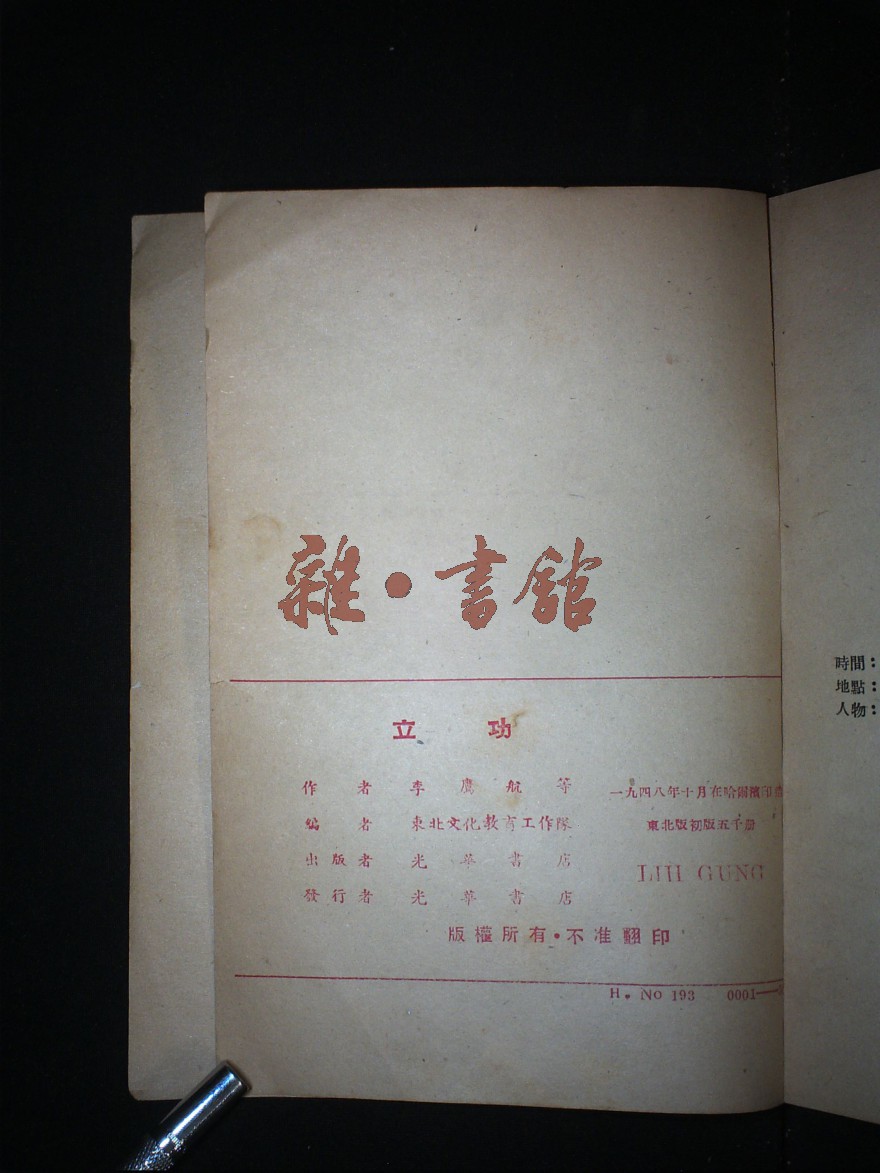 雜·書館
立功
作者 李鷹航等
編者 東北文化教育工作隊
出版者 光華書店
發行者 光華書店
一九四八年十月在哈爾濱印
東北版初版五千册
LIH GUNG
版權所有·不准翻印
H. No 193 0001—
時間：
地點：
人物：